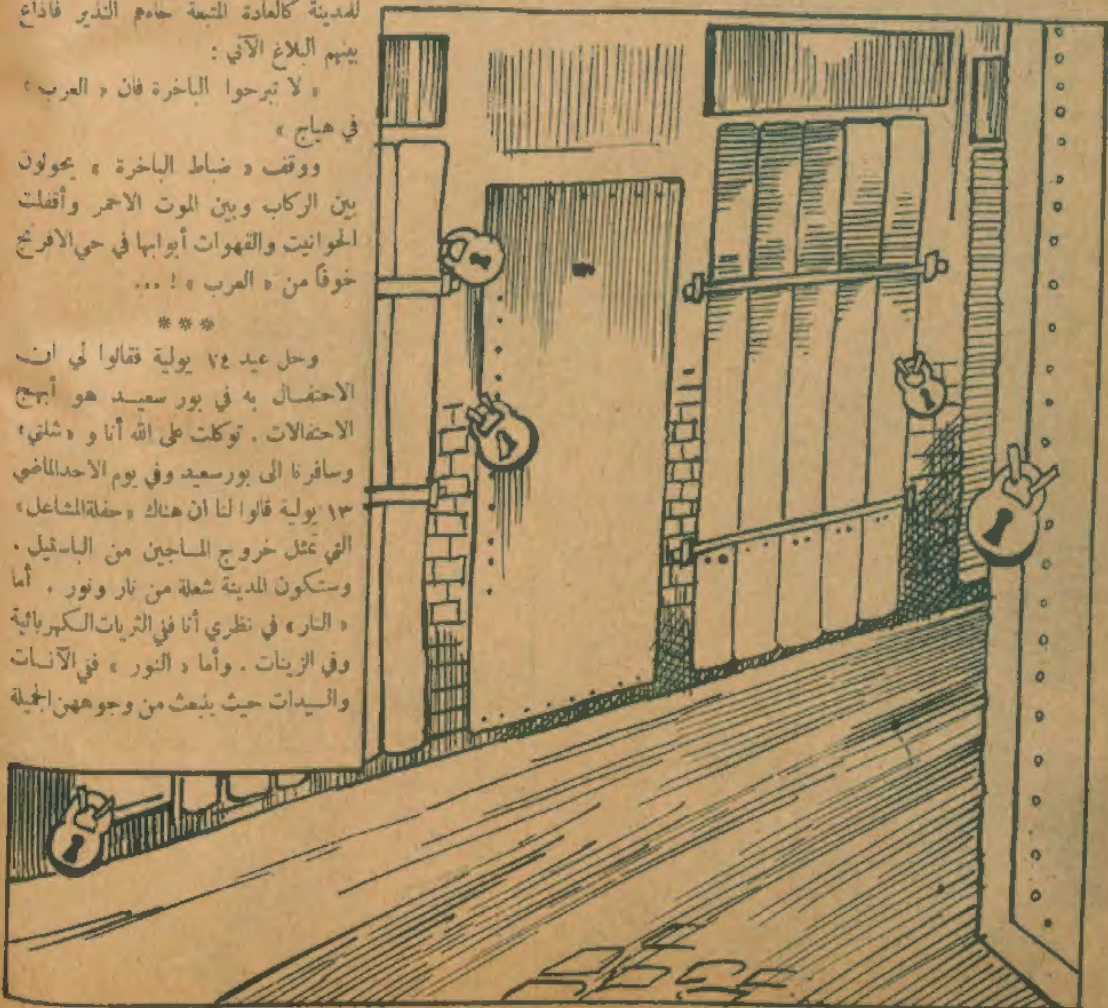 للمدينة كالعادة المتبعة جاءهم النذير فأذاع
بينهم البلاغ الآتي :
« لا تبرحوا الباخرة فان « العرب »
في هياج »
ووقف « ضباط الباخرة » يحولون
بين الركاب وبين الموت الاحمر وأقفلت
الحوانيت والقهوات أبوابها في حي الافرنج
خوفاً من « العرب » ! ...
***
وحل عيد ١٤ يولية فقالوا لي ان
الاحتفال به في بور سعيد هو أبهج
الاحتفالات . توكلت على الله أنا و « شلتي »
وسافرنا الى بورسعيد وفي يوم الاحد الماضي
١٣ يولية قالوا لنا ان هناك « حفلة المشاعل »
التي تمثل خروج المساجين من الباستيل .
وستكون المدينة شعلة من نار ونور . أما
« النار » في نظري أنا ففي الثريات الكهربائية
وفي الزينات . وأما « النور » ففي الآنسات
والسيدات حيث ينبعث من وجوههن الجميلة